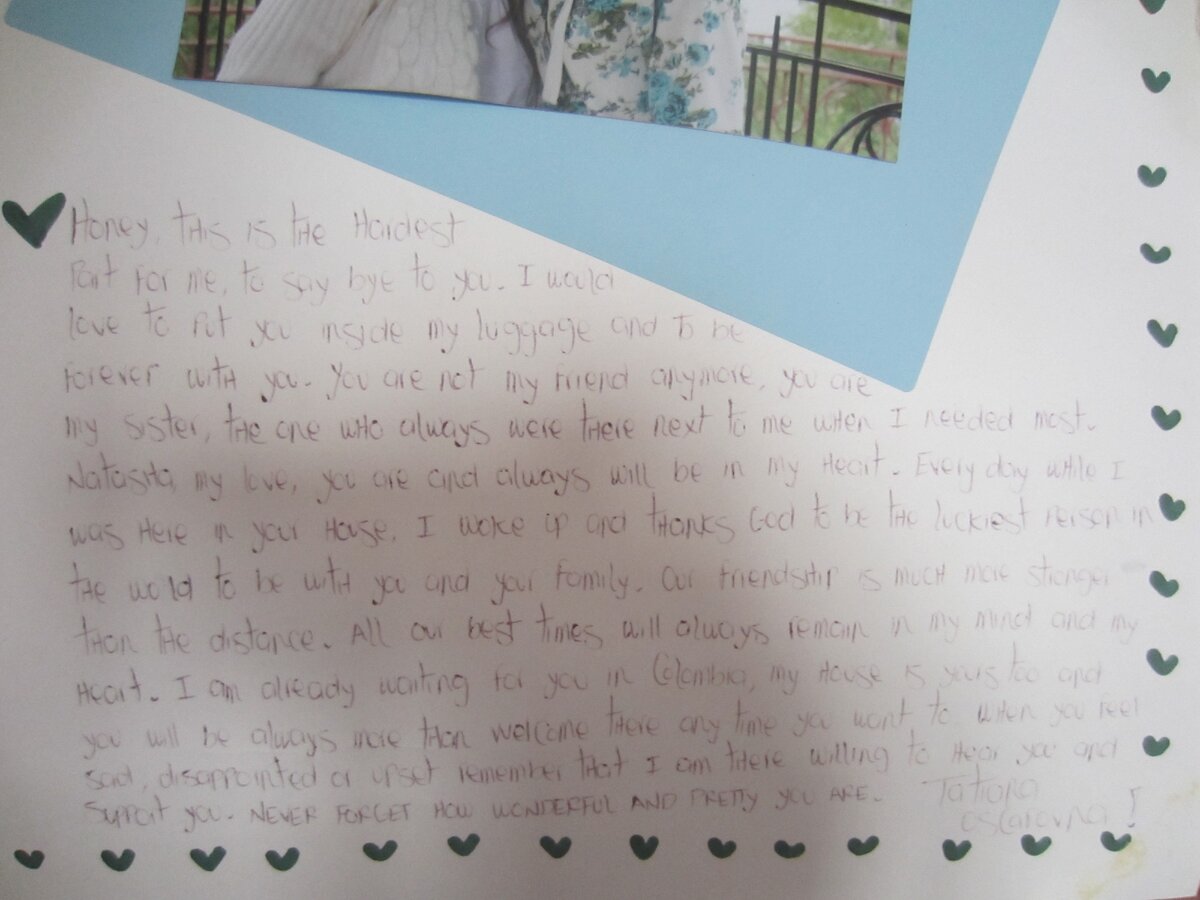 Honey, this is the Hardest
Part for me, to say bye to you. I would
love to put you inside my luggage and to be
forever with you. You are not my friend anymore, you are
my sister, the one who always were there next to me when I needed most.
Natasha, my love, you are and always will be in my Heart. Every day while I
was Here in your House, I woke up and thanks God to be the luckiest person in
the world to be with you and your family. Our friendship is much more stronger
than the distance. All our best times will always remain in my mind and my
Heart. I am already waiting for you in Colombia, my House is yours too and
you will be always more than welcome there any time you want to, when you feel
sad, disappointed or upset remember that I am there willing to Hear you and
support you. NEVER FORGET HOW WONDERFUL AND PRETTY YOU ARE. Tatiana
Oscarovna!